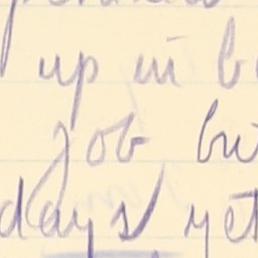 up in b
job bu
days yet